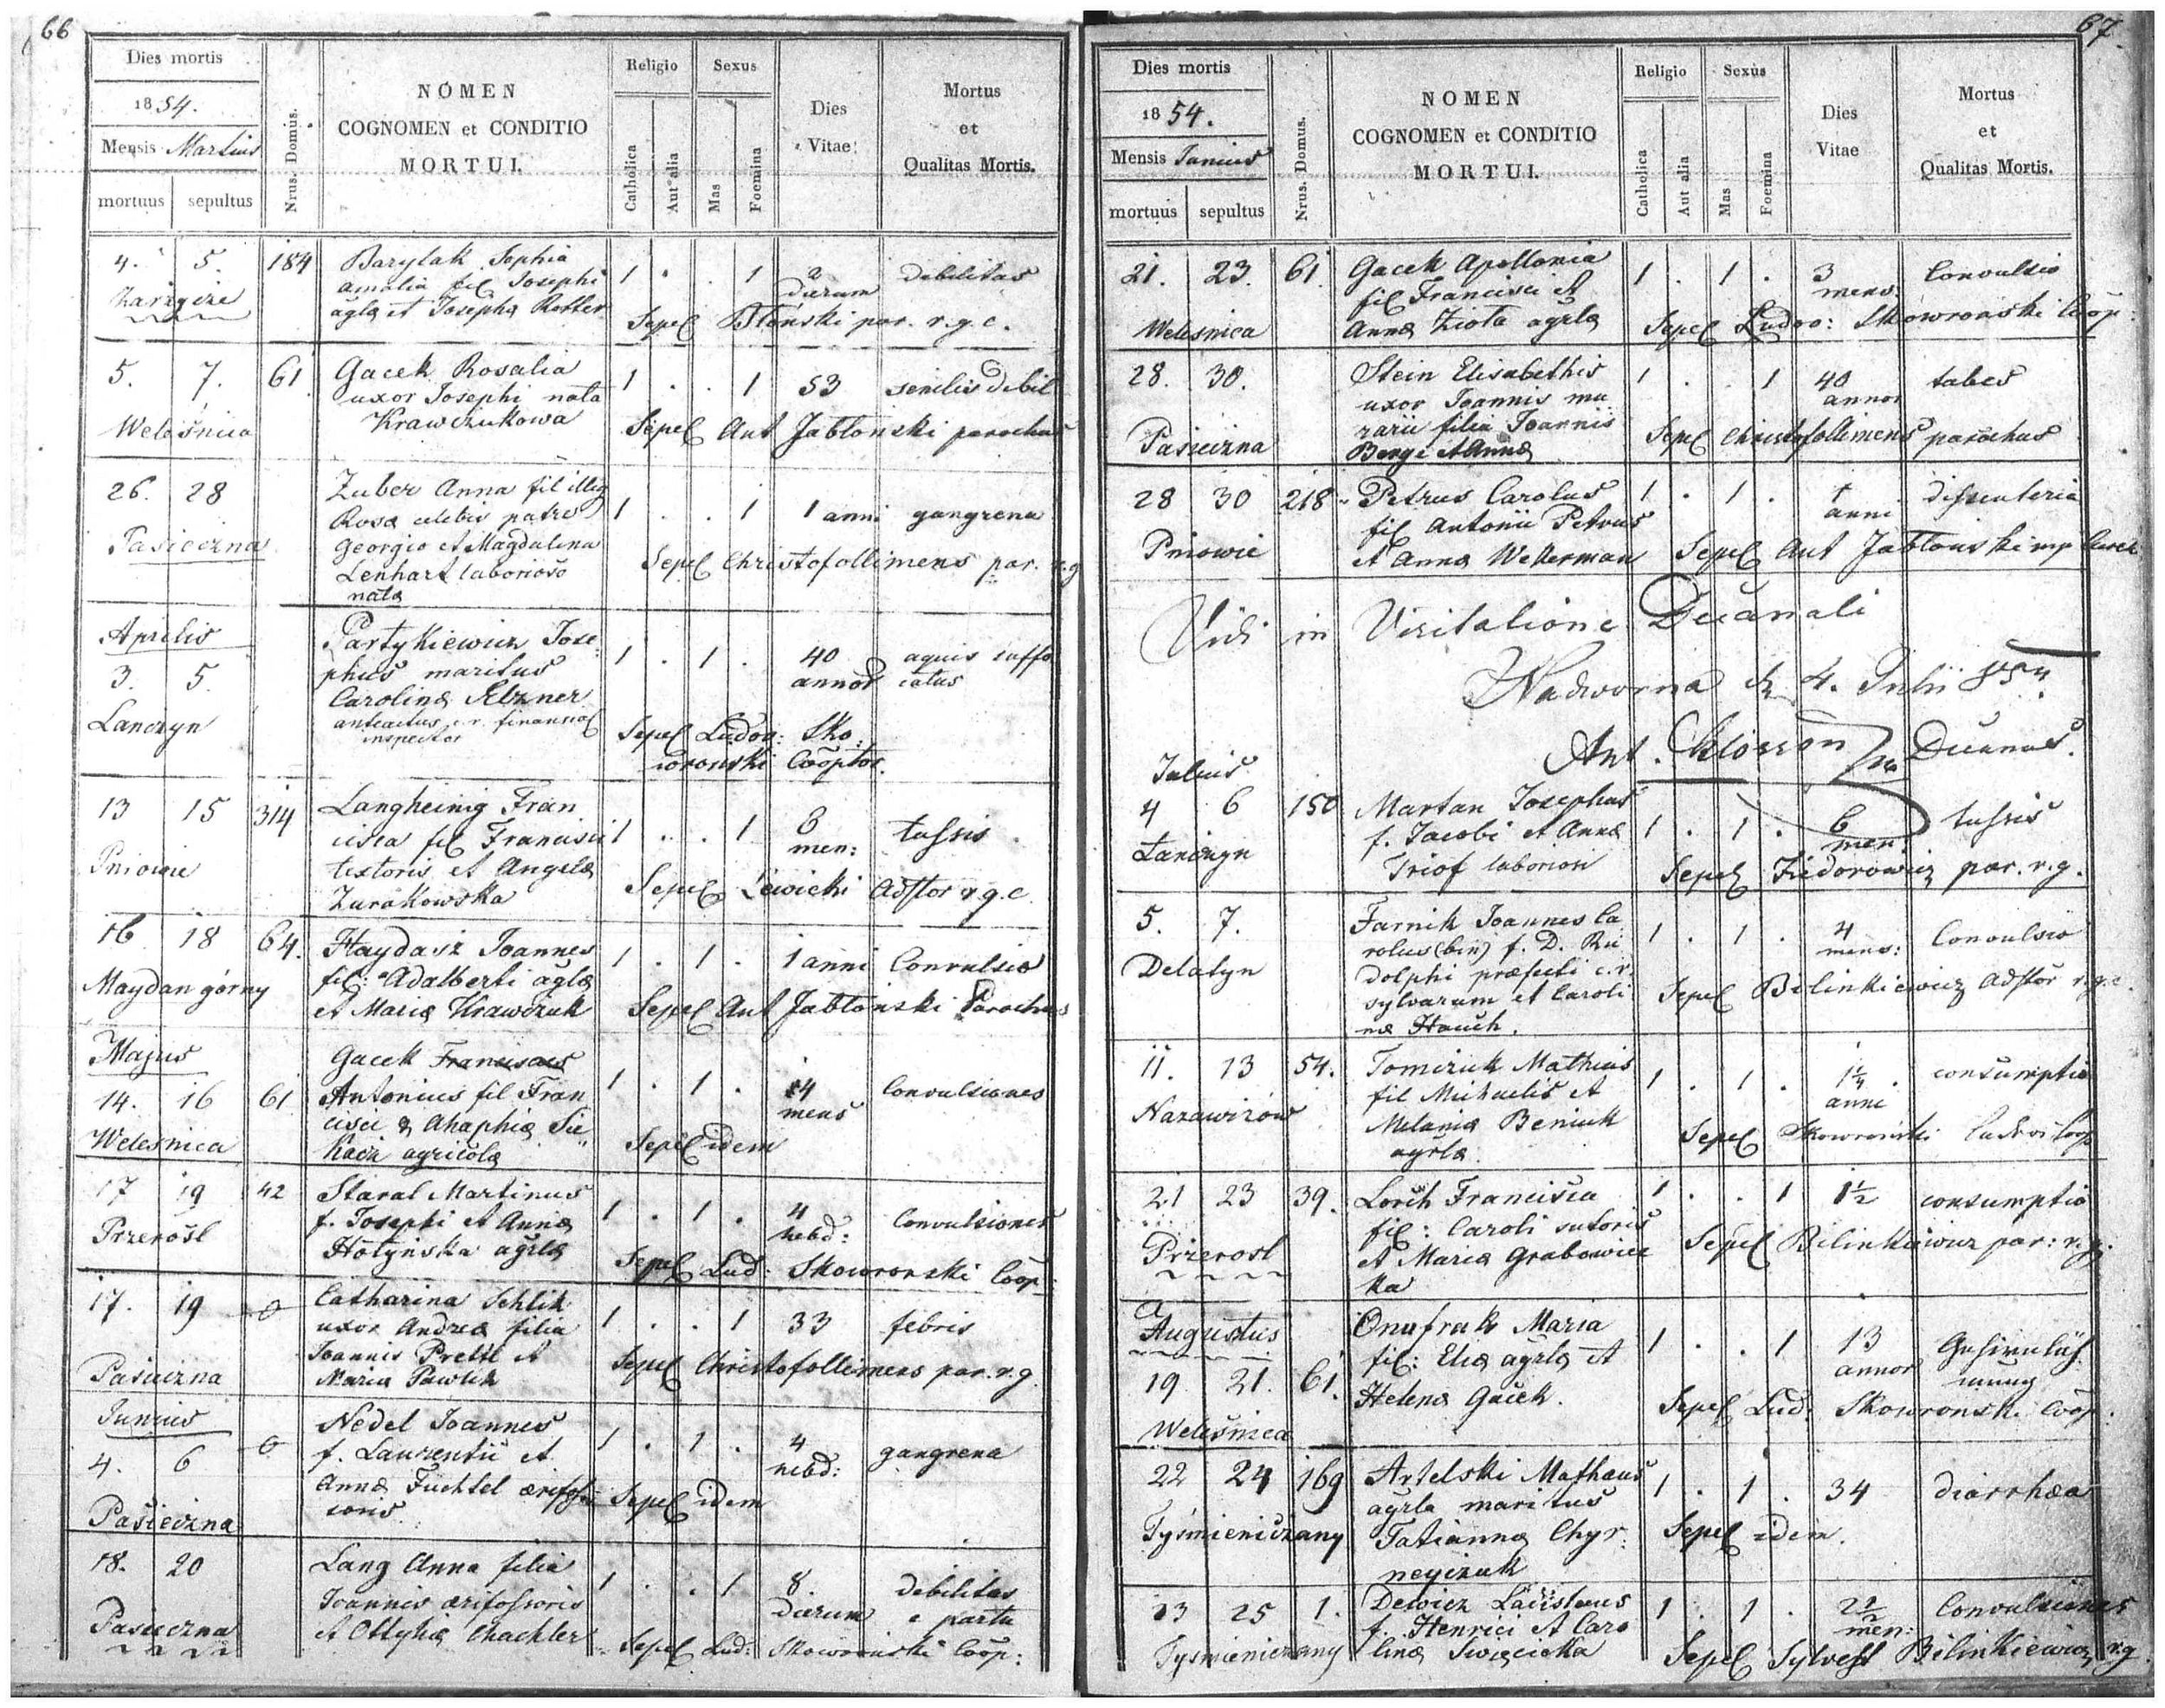 66
Dies mortis
1854.
Mensis Martius
mortuus sepultus
Nrus. Domus.
NOMEN
COGNOMEN et CONDITIO
MORTUI.
Religio
Catholica
Aut alia
Sexus
Mas
Foemina
Dies
Vitae
Mortus
et
Qualitas Mortis.
4. 5. 184 Barylak Sophia 1 . . 1 2 debilitas
amalia fil Josephi dierum
agla et Josepha Rotter
Sepel Błonski par. r.g.c.
5. 7. 61 Gacek Rosalia 1 . . 1 53 senilis debil
uxor Josephi nata
Welesnica Krawczukowa Sepel Ant Jabłonski parochus
26. 28 Zuber Anna fil illeg
Rosa celebis patre 1 . . 1 1 anni gangrena
Pasieczna Georgio et Magdalena
Lenhart laborioso Sepel Christofollimens par. r.g
nata
Aprilis Partykiewicz Jose
3. 5. phus maritus 1 . 1 . 40 aquis suffo
Carolina Elzner annor catus
Lanczyn anteactus c.r. financial
inspector Sepel Ludov: Sko
wronski Cooptor.
13 15 314 Langheinig Fran
cisca fil Francisci 1 . . 1 6 tussis
Pniowie textoris et Angela men:
Zurakowska Sepel Lewicki Adstor r.g.c.
16 18 64. Haydasz Joannes
fil: Adalberti agla 1 . 1 . 1 anni Convulsio
Maydan górny et Maria Krawczuk Sepel Ant Jabłonski Parochus
Majus Gacek Franciscus
14. 16 61 Antonius fil Fran 1 . 1 . 14 Convulsiones
cisci & Ahaphia Sie mens
Welesnica kacz agricola Sepel idem
17 19 42 Staral Martinus
f. Josephi et Anna 1 . 1 . 4 Convulsiones
Przerosl Hotynska agrla hebd:
Sepel Lud: Skowronski Coop:
17. 19 0 Catharina Schlik
uxor Andrea filia 1 . . 1 33 febris
Joannis Prettl et
Pasieczna Maria Pawlik Sepel Christofollimens par. r.g.
Junius Nedel Joannes
4. 6 0 f. Laurentii et 1 . 1 . 4 gangrena
Anna Fuchtel hebd:
Pasieczna Sepel idem
18. 20 Lang Anna filia
Joannis 1 . . 1 8. debilitas
Pasieczna et Ottylia Chachler dierum e partu
Sepel Lud: Skowronski Coop:
67.
Dies mortis
1854.
Mensis Junius
mortuus sepultus
Nrus. Domus.
NOMEN
COGNOMEN et CONDITIO
MORTUI.
Religio
Catholica
Aut alia
Sexus
Mas
Foemina
Dies
Vitae
Mortus
et
Qualitas Mortis.
21. 23. 61. Gacek Apollonia 1 . 1 . 3 Convulsio
fil Francisci et mens.
Welesnica Anna Ziota agrla Sepel Ludov: Skowronski Coop:
28. 30. Stein Elisabethis 1 . . 1 40 tabes
uxor Joannis mu annor
rarii filia Joannis
Pasieczna Berge et Anna Sepel Christofollimens parochus
28 30 218 Petrus Carolus 1 . 1 . 1 disenteria
fil Antonii Petrus anni
Pniowie et Anna Wekerman Sepel Ant Jabłonski mp
Vidi in Visitatione Decanali
Nadworna d. 4. Julii 854.
Ant. Decanus.
Julius
4 6 150 Martan Josephus
f. Jacobi et Anna 1 . 1 . 6 tussis
Lanczyn Triof laboriosi men:
Sepel Fiedorowicz par. r.g.
5. 7. Farnik Joannes Ca
rolus (bin) f. D. Ru 1 . 1 . 4 Convulsio
Delatyn dolphi praefecti c.r. mens:
sylvarum et Caroli Sepel Bilinkiewicz Adstor r.g.c.
na Hauch.
11. 13 54. Tomczuk Mathias
fil Michaelis et 1 . 1 . 1¼ consumptio
Nazawizów Melania Beniuk anni
agrla. Sepel Skowronski Coop
21 23 39. Lorch Francisca 1 . . 1 1½ consumptio
fil: Caroli sutoris
Przerosl et Maria Grabowiec Sepel Bilinkiewicz par: r.g.
ka
Augustus Onufrak Maria
fil: Elia agrla et 1 . . 1 13
19. 21. 61. Helena Gacek. annor
Welesnica Sepel Lud: Skowronski Coop.
22 24 169 Artelski Mathaus
agrla maritus 1 . 1 . 34 diarrhaea
Tysmieniczany Tatianna Chyr Sepel idem.
neyczuk
23 25 1. Dewicz Ladislaus 1 . 1 . 2½ Convulsiones
f. Henrici et Caro men:
Tysmieniczany lina Swięcicka Sepel Sylvest Bilinkiewicz r.g